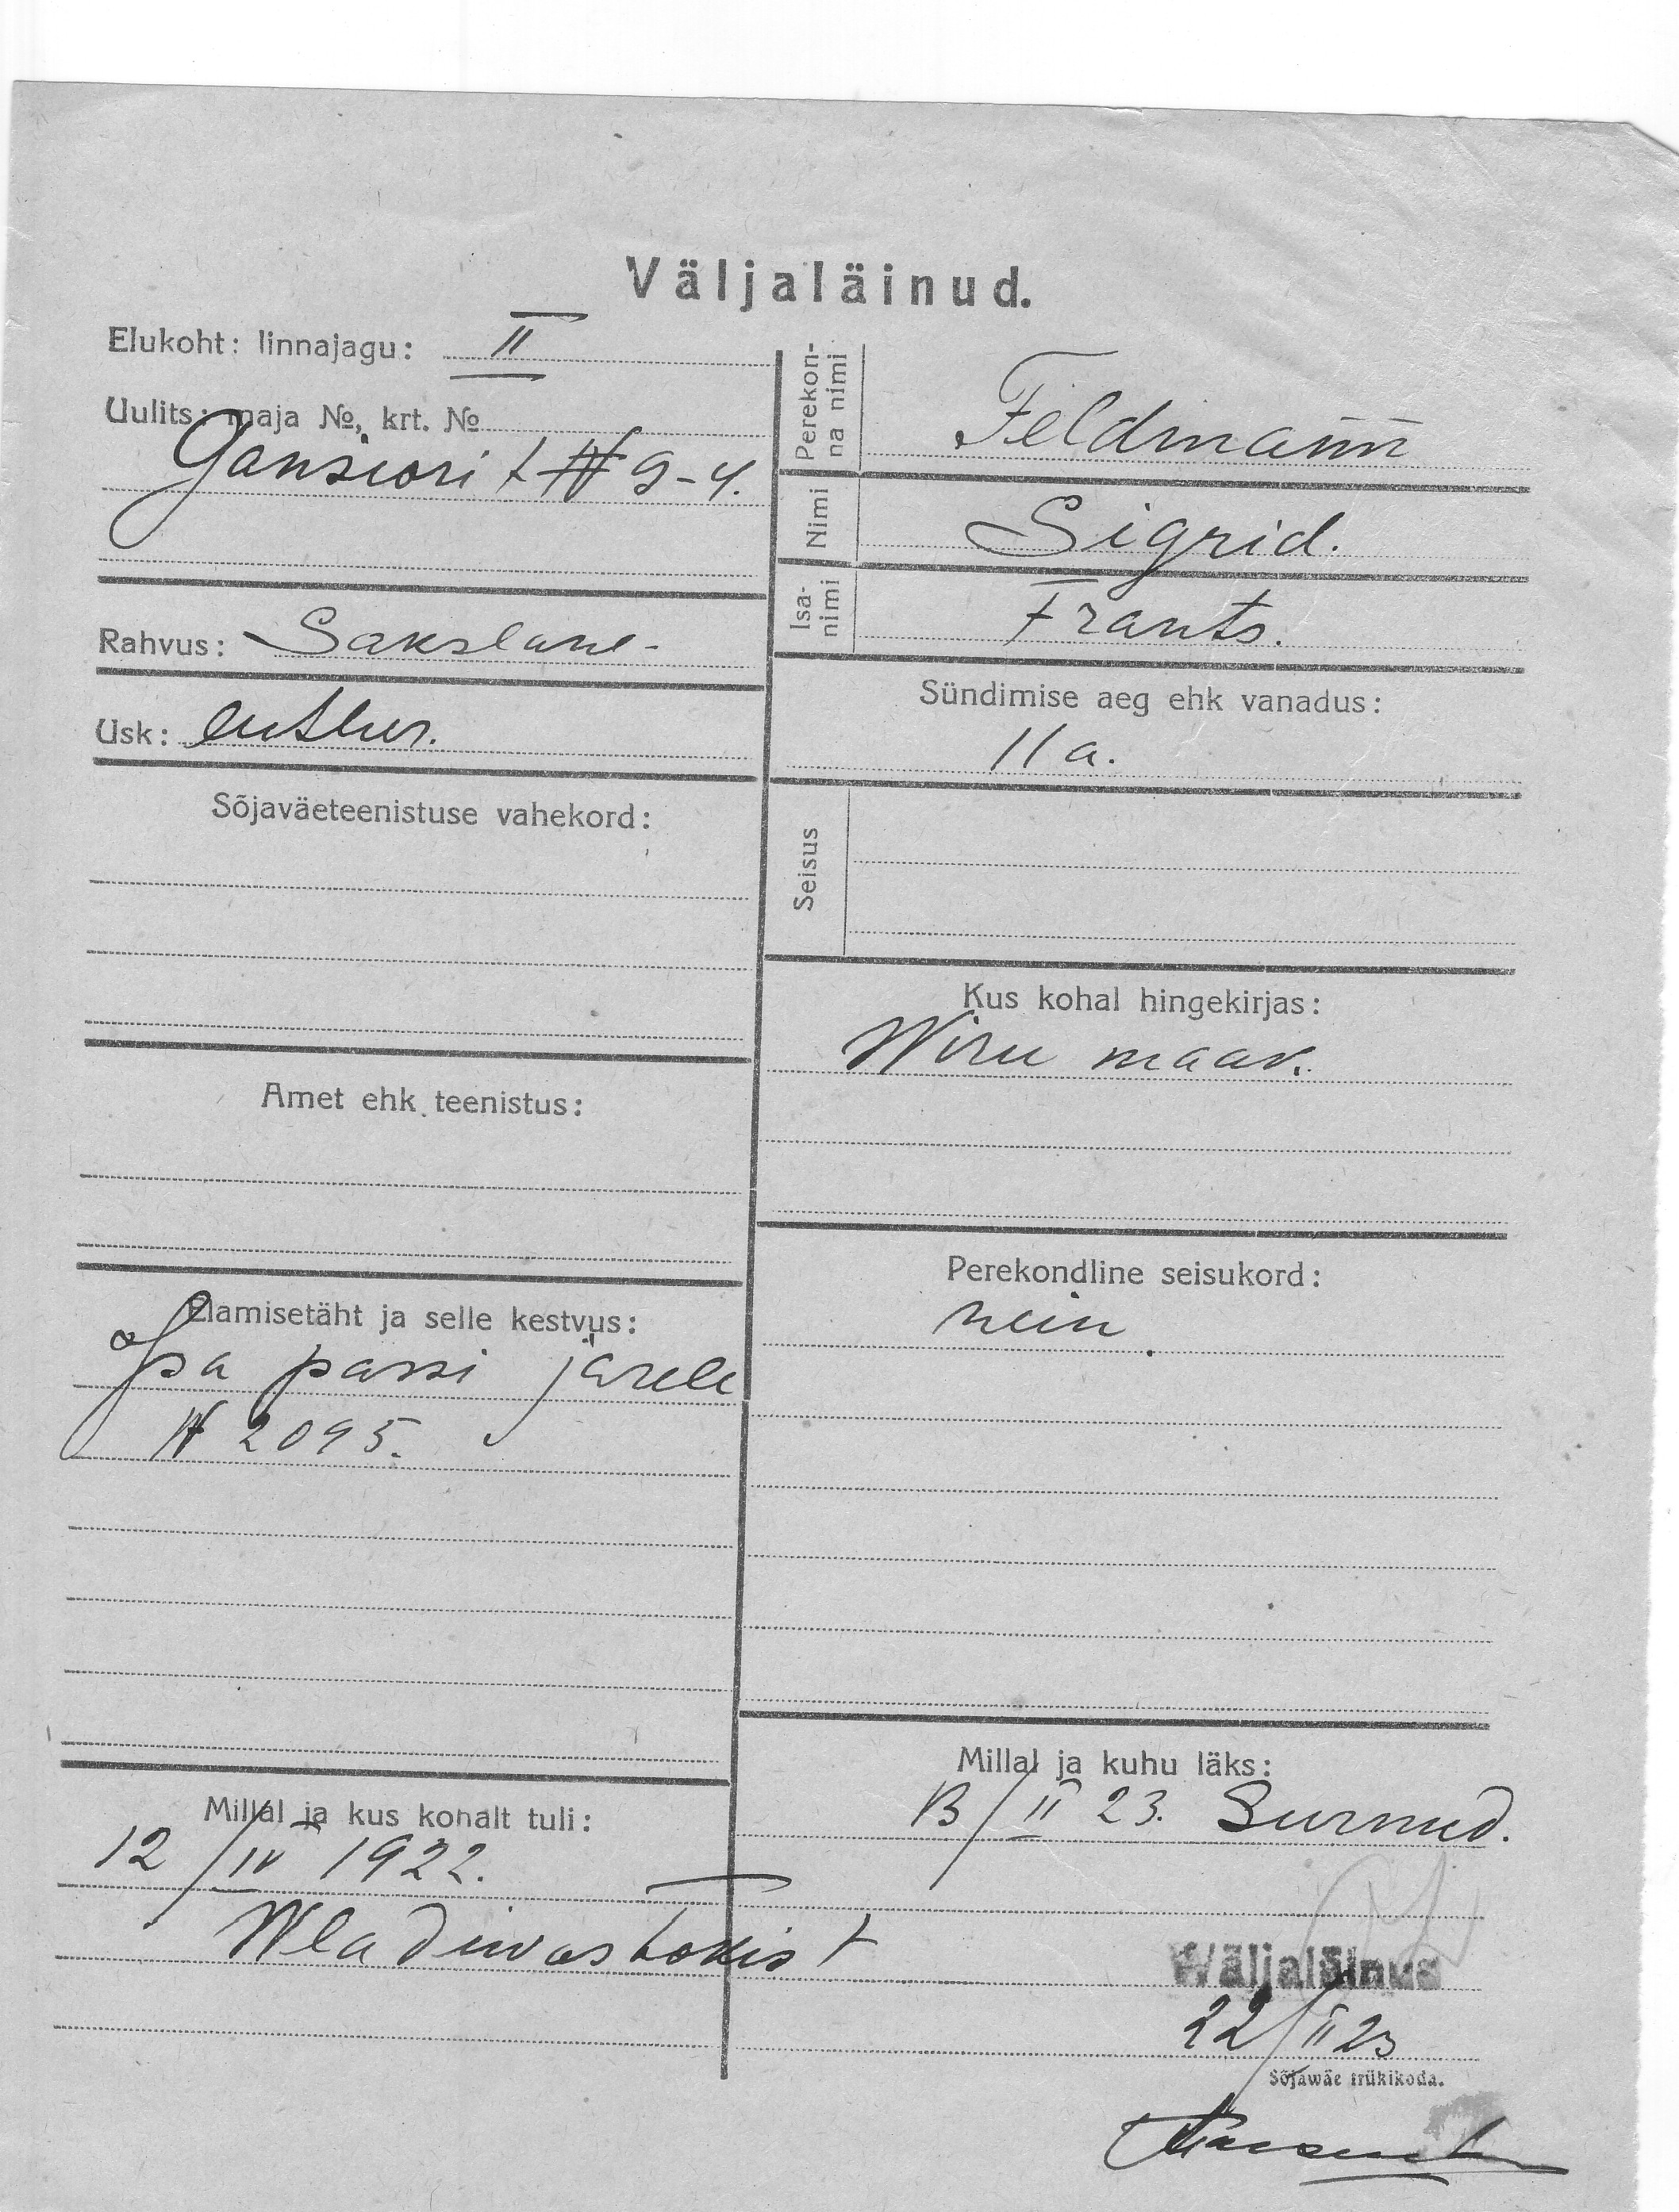 Väljaläinud.
Elukoht: linnajagu: II
Uulits: maja №, krt. №
Gonsiori t № 9-4.
Rahvus: Sakslane-
Usk: luther.
Sõjaväeteenistuse vahekord:
Amet ehk teenistus:
Elamisetäht ja selle kestvus:
Isa passi järele
№ 2095.
Millal ja kus kohalt tuli:
12/IV 1922.
Wladiwastokist
Perekon-
na nimi
Feldmann
Nimi
Sigrid.
Isa-
nimi
Frants.
Sündimise aeg ehk vanadus:
11 a.
Seisus
Kus kohal hingekirjas:
Wiru maak.
Perekondline seisukord:
nein
Millal ja kuhu läks:
13/II 23. Surnud.
Väljaläinud
22/II 23
Sõjawäe trükikoda.